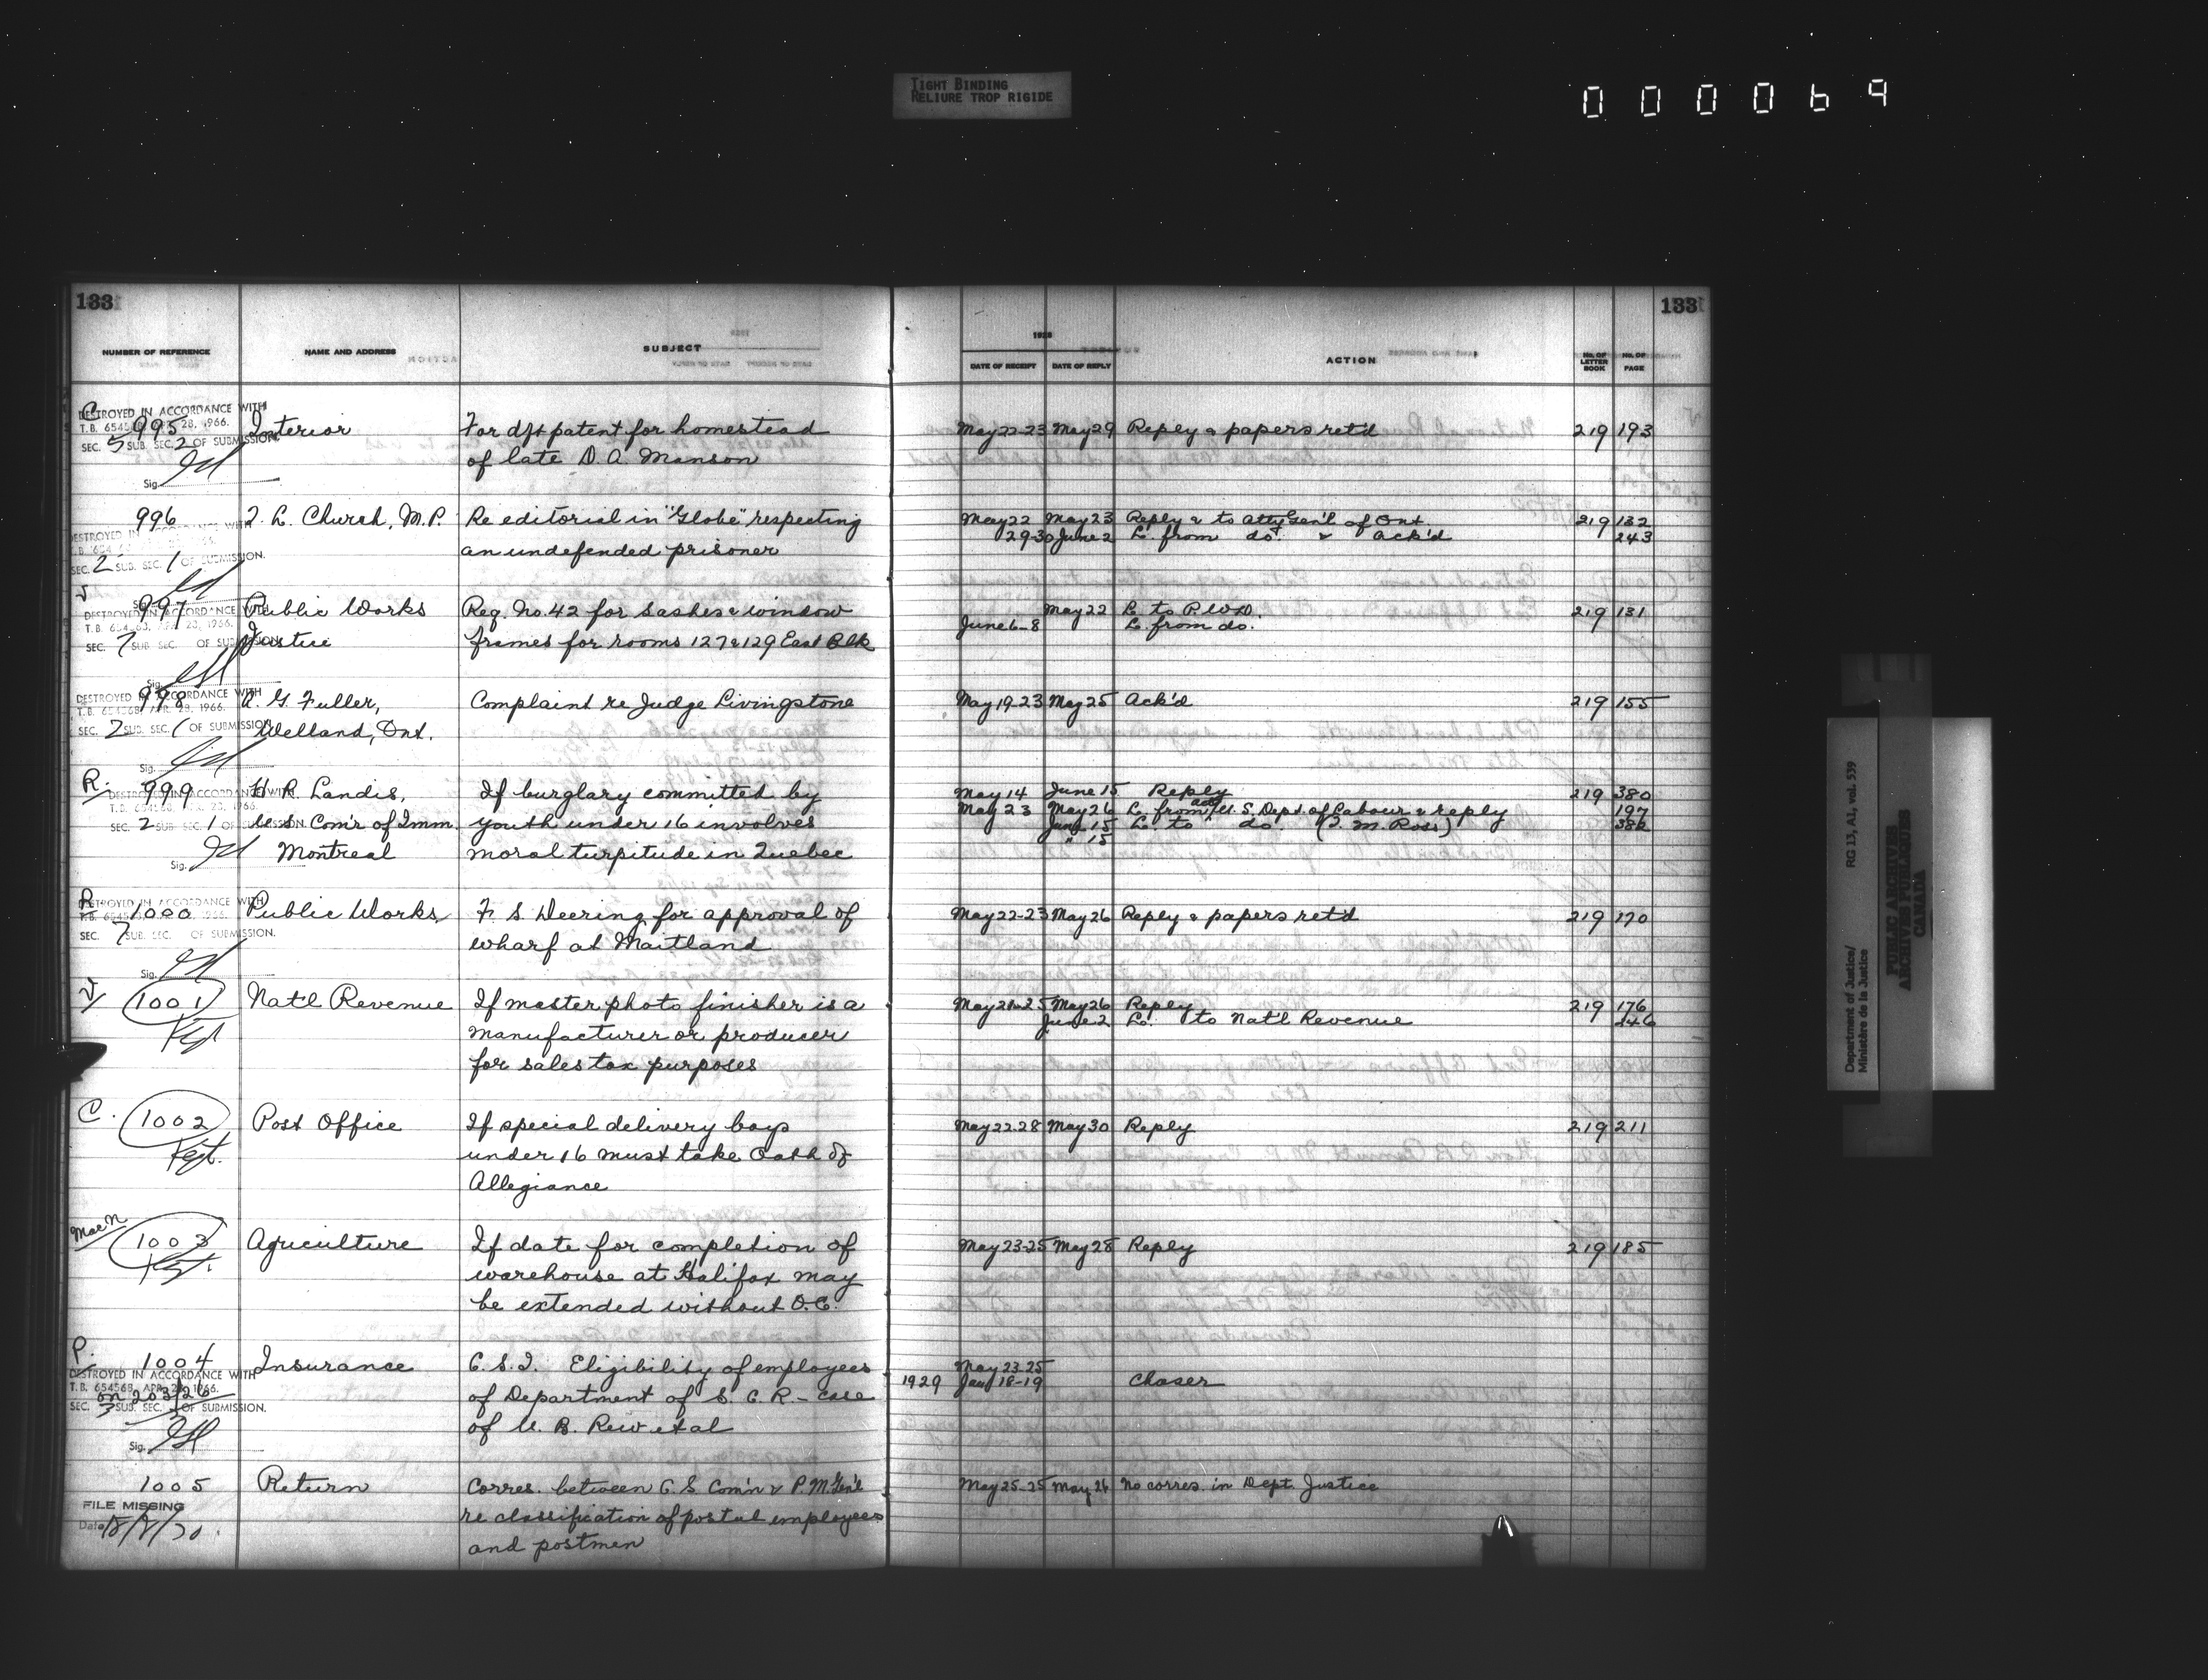 TIGHT BINDING
RELIURE TROP RIGIDE
000069
133
133
1928
NUMBER OF REFERENCE NAME AND ADDRESS SUBJECT DATE OF RECEIPT DATE OF REPLY ACTION No. OF LETTER BOOK No. OF PAGE
C
DESTROYED IN ACCORDANCE WITH
T.B. 654568, APR. 28, 1966.
SEC. 5 SUB. SEC. 2 OF SUBMISSION.
Sig.
995 Interior For dft patent for homestead May 22-23 May 29 Reply & papers ret'd 219 193
of late D. A. Manson
996 T. L. Church, M.P. Re editorial in "Globe" respecting May 22 May 23 Reply & to Atty Gen'l of Ont. 219 132
an undefended prisoner 29-30 June 2 L. from do. & ack'd 243
DESTROYED IN ACCORDANCE WITH
SEC. 2 SUB. SEC. 1 OF SUBMISSION.
997 Public Works Req. No. 42 for sashes & window May 22 L. to P.W.D. 219 131
June 6-8 L. from do.
Justice frames for rooms 127 & 129 East Blk
DESTROYED IN ACCORDANCE WITH
T.B. 654568, APR. 28, 1966.
SEC. 7 SUB. SEC. OF SUBMISSION
Sig.
998 A. G. Fuller, Complaint re Judge Livingstone May 19-23 May 25 Ack'd 219 155
Welland, Ont.
DESTROYED IN ACCORDANCE WITH
T.B. 654568, APR. 28, 1966.
SEC. 2 SUB. SEC. 1 OF SUBMISSION
Sig.
R. 999 H. R. Landis, If burglary committed by May 14 June 15 Reply 219 380
May 23 May 26 L. from U.S. Dept. of Labour & reply 197
U.S. Com'r of Imm. youth under 16 involves June 15 L. to do. (T. M. Ross) 382
" 15
Montreal moral turpitude in Quebec
DESTROYED IN ACCORDANCE WITH
T.B. 654568, APR. 28, 1966.
SEC. 2 SUB. SEC. 1 OF SUBMISSION.
Sig.
R 1000 Public Works F. S. Deering for approval of May 22-23 May 26 Reply & papers ret'd 219 170
wharf at Maitland
DESTROYED IN ACCORDANCE WITH
SEC. 7 SUB. SEC. OF SUBMISSION.
Sig.
1001 Nat'l Revenue If master photo finisher is a May 21-25 May 26 Reply 219 176
Kept manufacturer or producer June 2 L. to Nat'l Revenue 246
for sales tax purposes
C. 1002 Post Office If special delivery boys May 22-28 May 30 Reply 219 211
Kept. under 16 must take Oath of
Allegiance
MacN 1003 Agriculture If date for completion of May 23-25 May 28 Reply 219 185
Kept. warehouse at Halifax may
be extended without O.C.
P. 1004 Insurance C.S.I. Eligibility of employees May 23-25
of Department of S.C.R. - case 1929 Jan 18-19 Chaser
of U. B. Rew et al
DESTROYED IN ACCORDANCE WITH
T.B. 654568, APR. 28, 1966.
on 203/26
SEC. 3 SUB. SEC. OF SUBMISSION.
Sig.
1005 Return Corres. between C.S. Com'n & P.M. Gen'l May 25-25 May 26 No corres. in Dept. Justice
re classification of postal employees
and postmen
FILE MISSING
Date 18/8/70.
Department of Justice/
Ministère de la Justice
RG 13, A1, vol. 539
PUBLIC ARCHIVES
ARCHIVES PUBLIQUES
CANADA